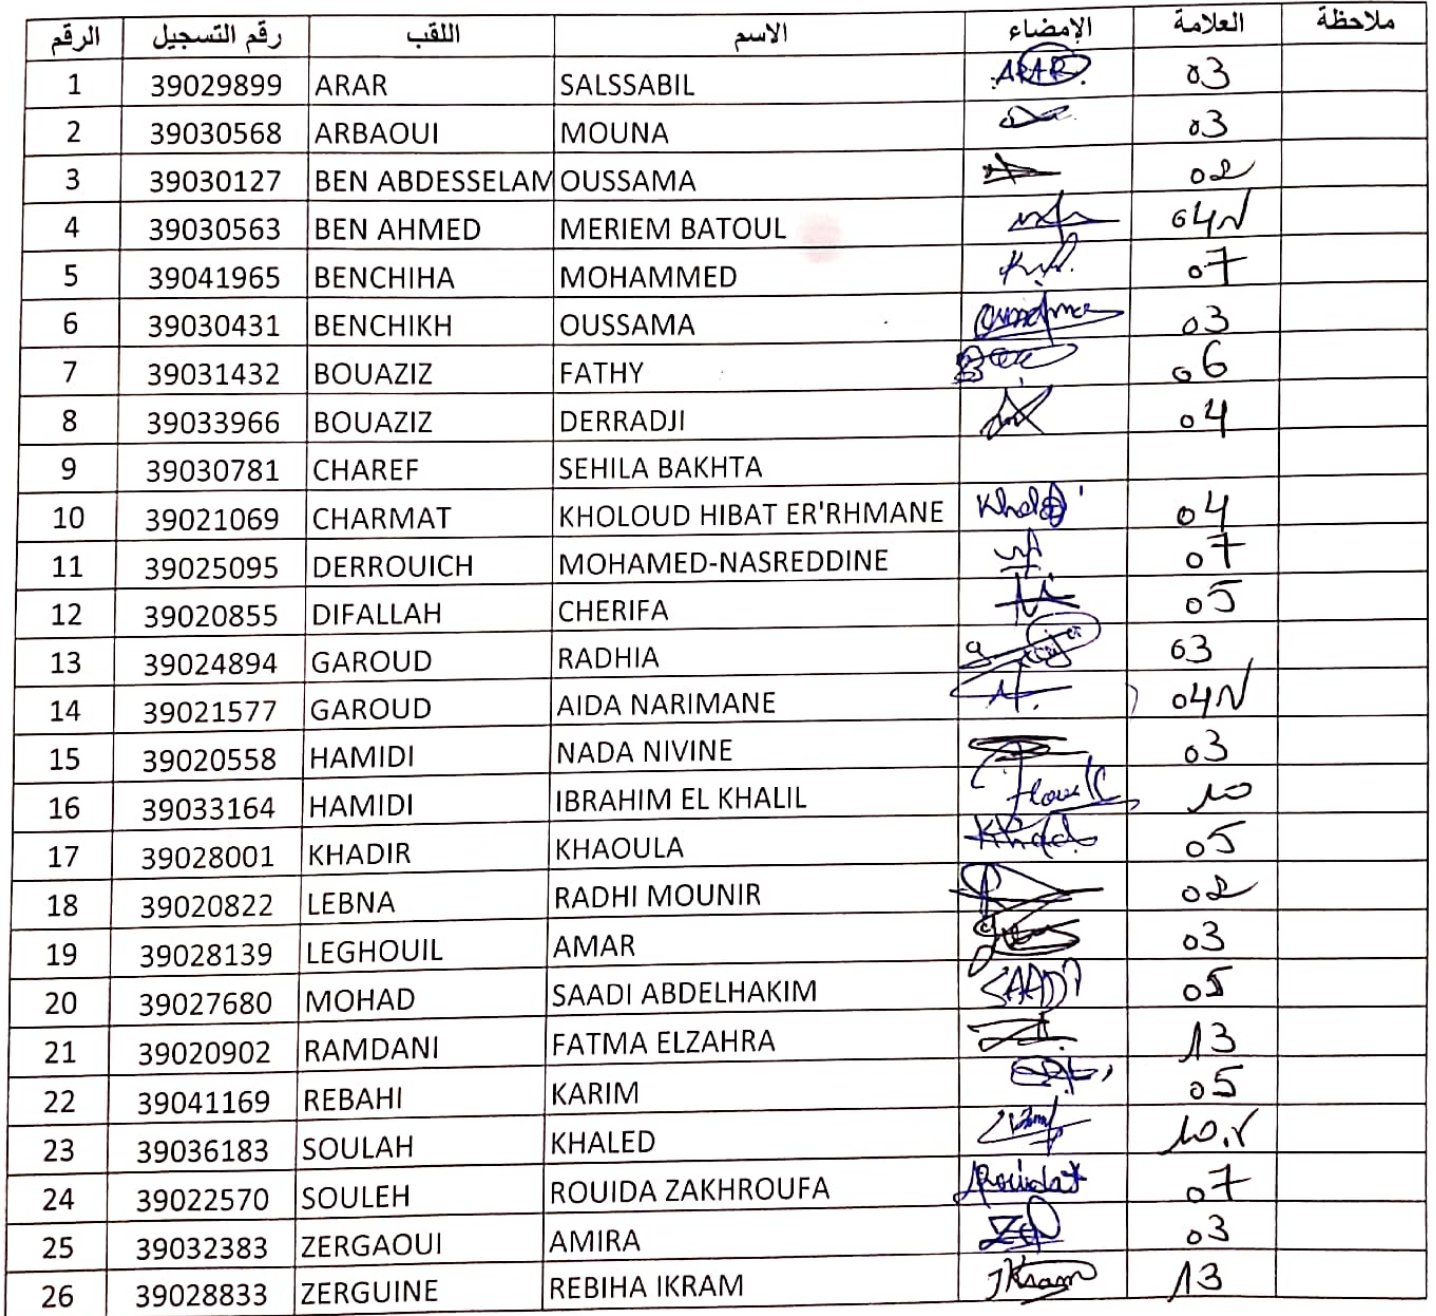 الرقم رقم التسجيل اللقب الاسم الإمضاء العلامة ملاحظة
1 39029899 ARAR SALSSABIL ARAR 03
2 39030568 ARBAOUI MOUNA 03
3 39030127 BEN ABDESSELAM OUSSAMA 02
4 39030563 BEN AHMED MERIEM BATOUL 04
5 39041965 BENCHIHA MOHAMMED 07
6 39030431 BENCHIKH OUSSAMA 03
7 39031432 BOUAZIZ FATHY 06
8 39033966 BOUAZIZ DERRADJI 04
9 39030781 CHAREF SEHILA BAKHTA
10 39021069 CHARMAT KHOLOUD HIBAT ER'RHMANE 04
11 39025095 DERROUICH MOHAMED-NASREDDINE 07
12 39020855 DIFALLAH CHERIFA 05
13 39024894 GAROUD RADHIA 03
14 39021577 GAROUD AIDA NARIMANE 04
15 39020558 HAMIDI NADA NIVINE 03
16 39033164 HAMIDI IBRAHIM EL KHALIL 10
17 39028001 KHADIR KHAOULA 05
18 39020822 LEBNA RADHI MOUNIR 02
19 39028139 LEGHOUIL AMAR 03
20 39027680 MOHAD SAADI ABDELHAKIM SAADI 05
21 39020902 RAMDANI FATMA ELZAHRA 13
22 39041169 REBAHI KARIM 05
23 39036183 SOULAH KHALED 10
24 39022570 SOULEH ROUIDA ZAKHROUFA 07
25 39032383 ZERGAOUI AMIRA 03
26 39028833 ZERGUINE REBIHA IKRAM IKram 13